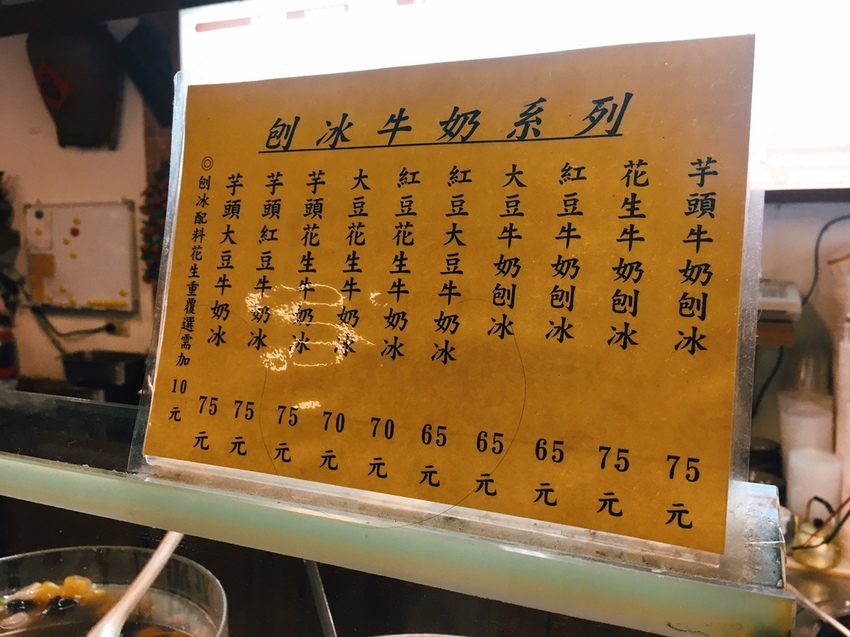 刨冰牛奶系列
芋頭牛奶刨冰 75元
花生牛奶刨冰 75元
紅豆牛奶刨冰 65元
大豆牛奶刨冰 65元
紅豆大豆牛奶冰 65元
紅豆花生牛奶冰 70元
大豆花生牛奶冰 70元
芋頭花生牛奶冰 75元
芋頭紅豆牛奶冰 75元
芋頭大豆牛奶冰 75元
◎刨冰配料花生重覆選需加10元